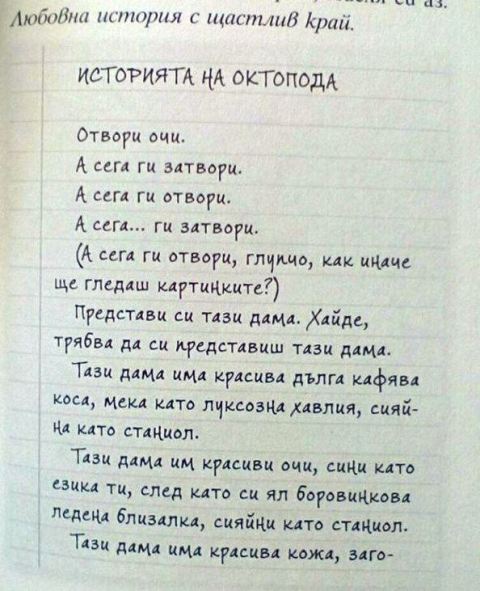 Любовна история с щастлив край.
ИСТОРИЯТА НА ОКТОПОДА
Отвори очи.
А сега ги затвори.
А сега ги отвори.
А сега... ги затвори.
(А сега ги отвори, глупчо, как иначе
ще гледаш картинките?)
Представи си тази дама. Хайде,
трябва да си представиш тази дама.
Тази дама има красива дълга кафява
коса, мека като луксозна хавлия, сияй-
на като станиол.
Тази дама им красиви очи, сини като
езика ти, след като си ял боровинкова
ледена близалка, сияйни като станиол.
Тази дама има красива кожа, заго-